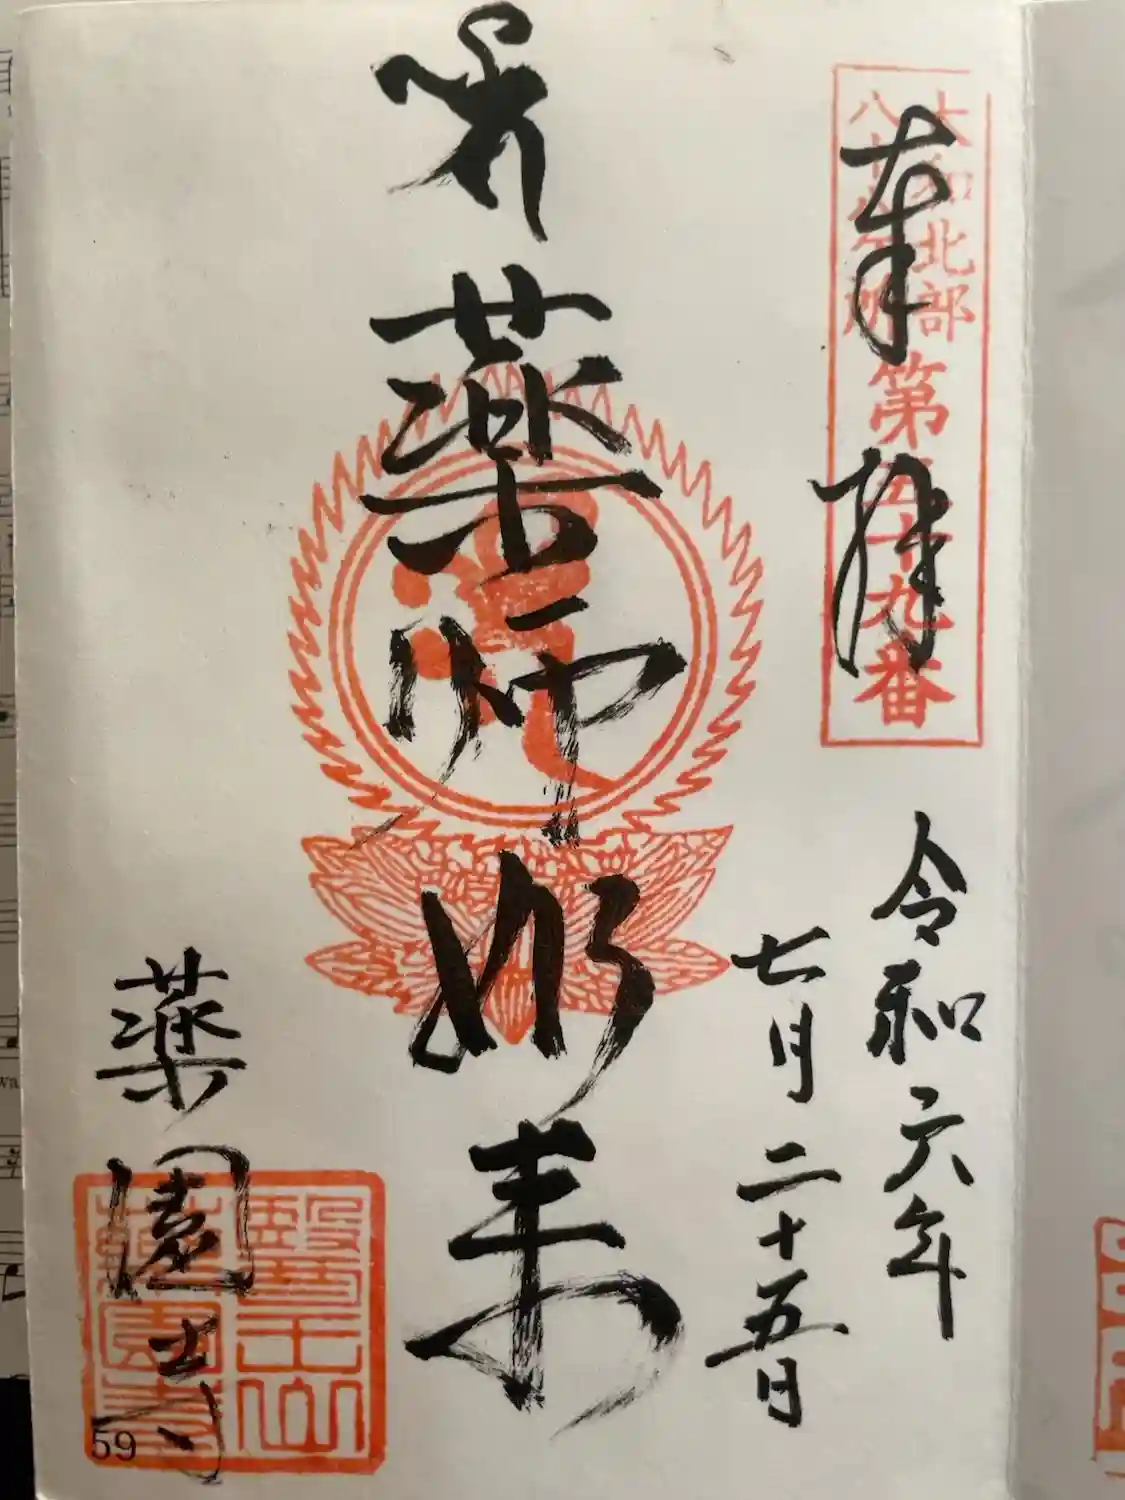 奉拝
大和北部
八十八ヶ所
第五十九番
令和六年
七月二十五日
薬師如来
薬園寺
醫王山
59